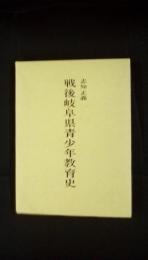 志知正義
戦後岐阜県青少年教育史